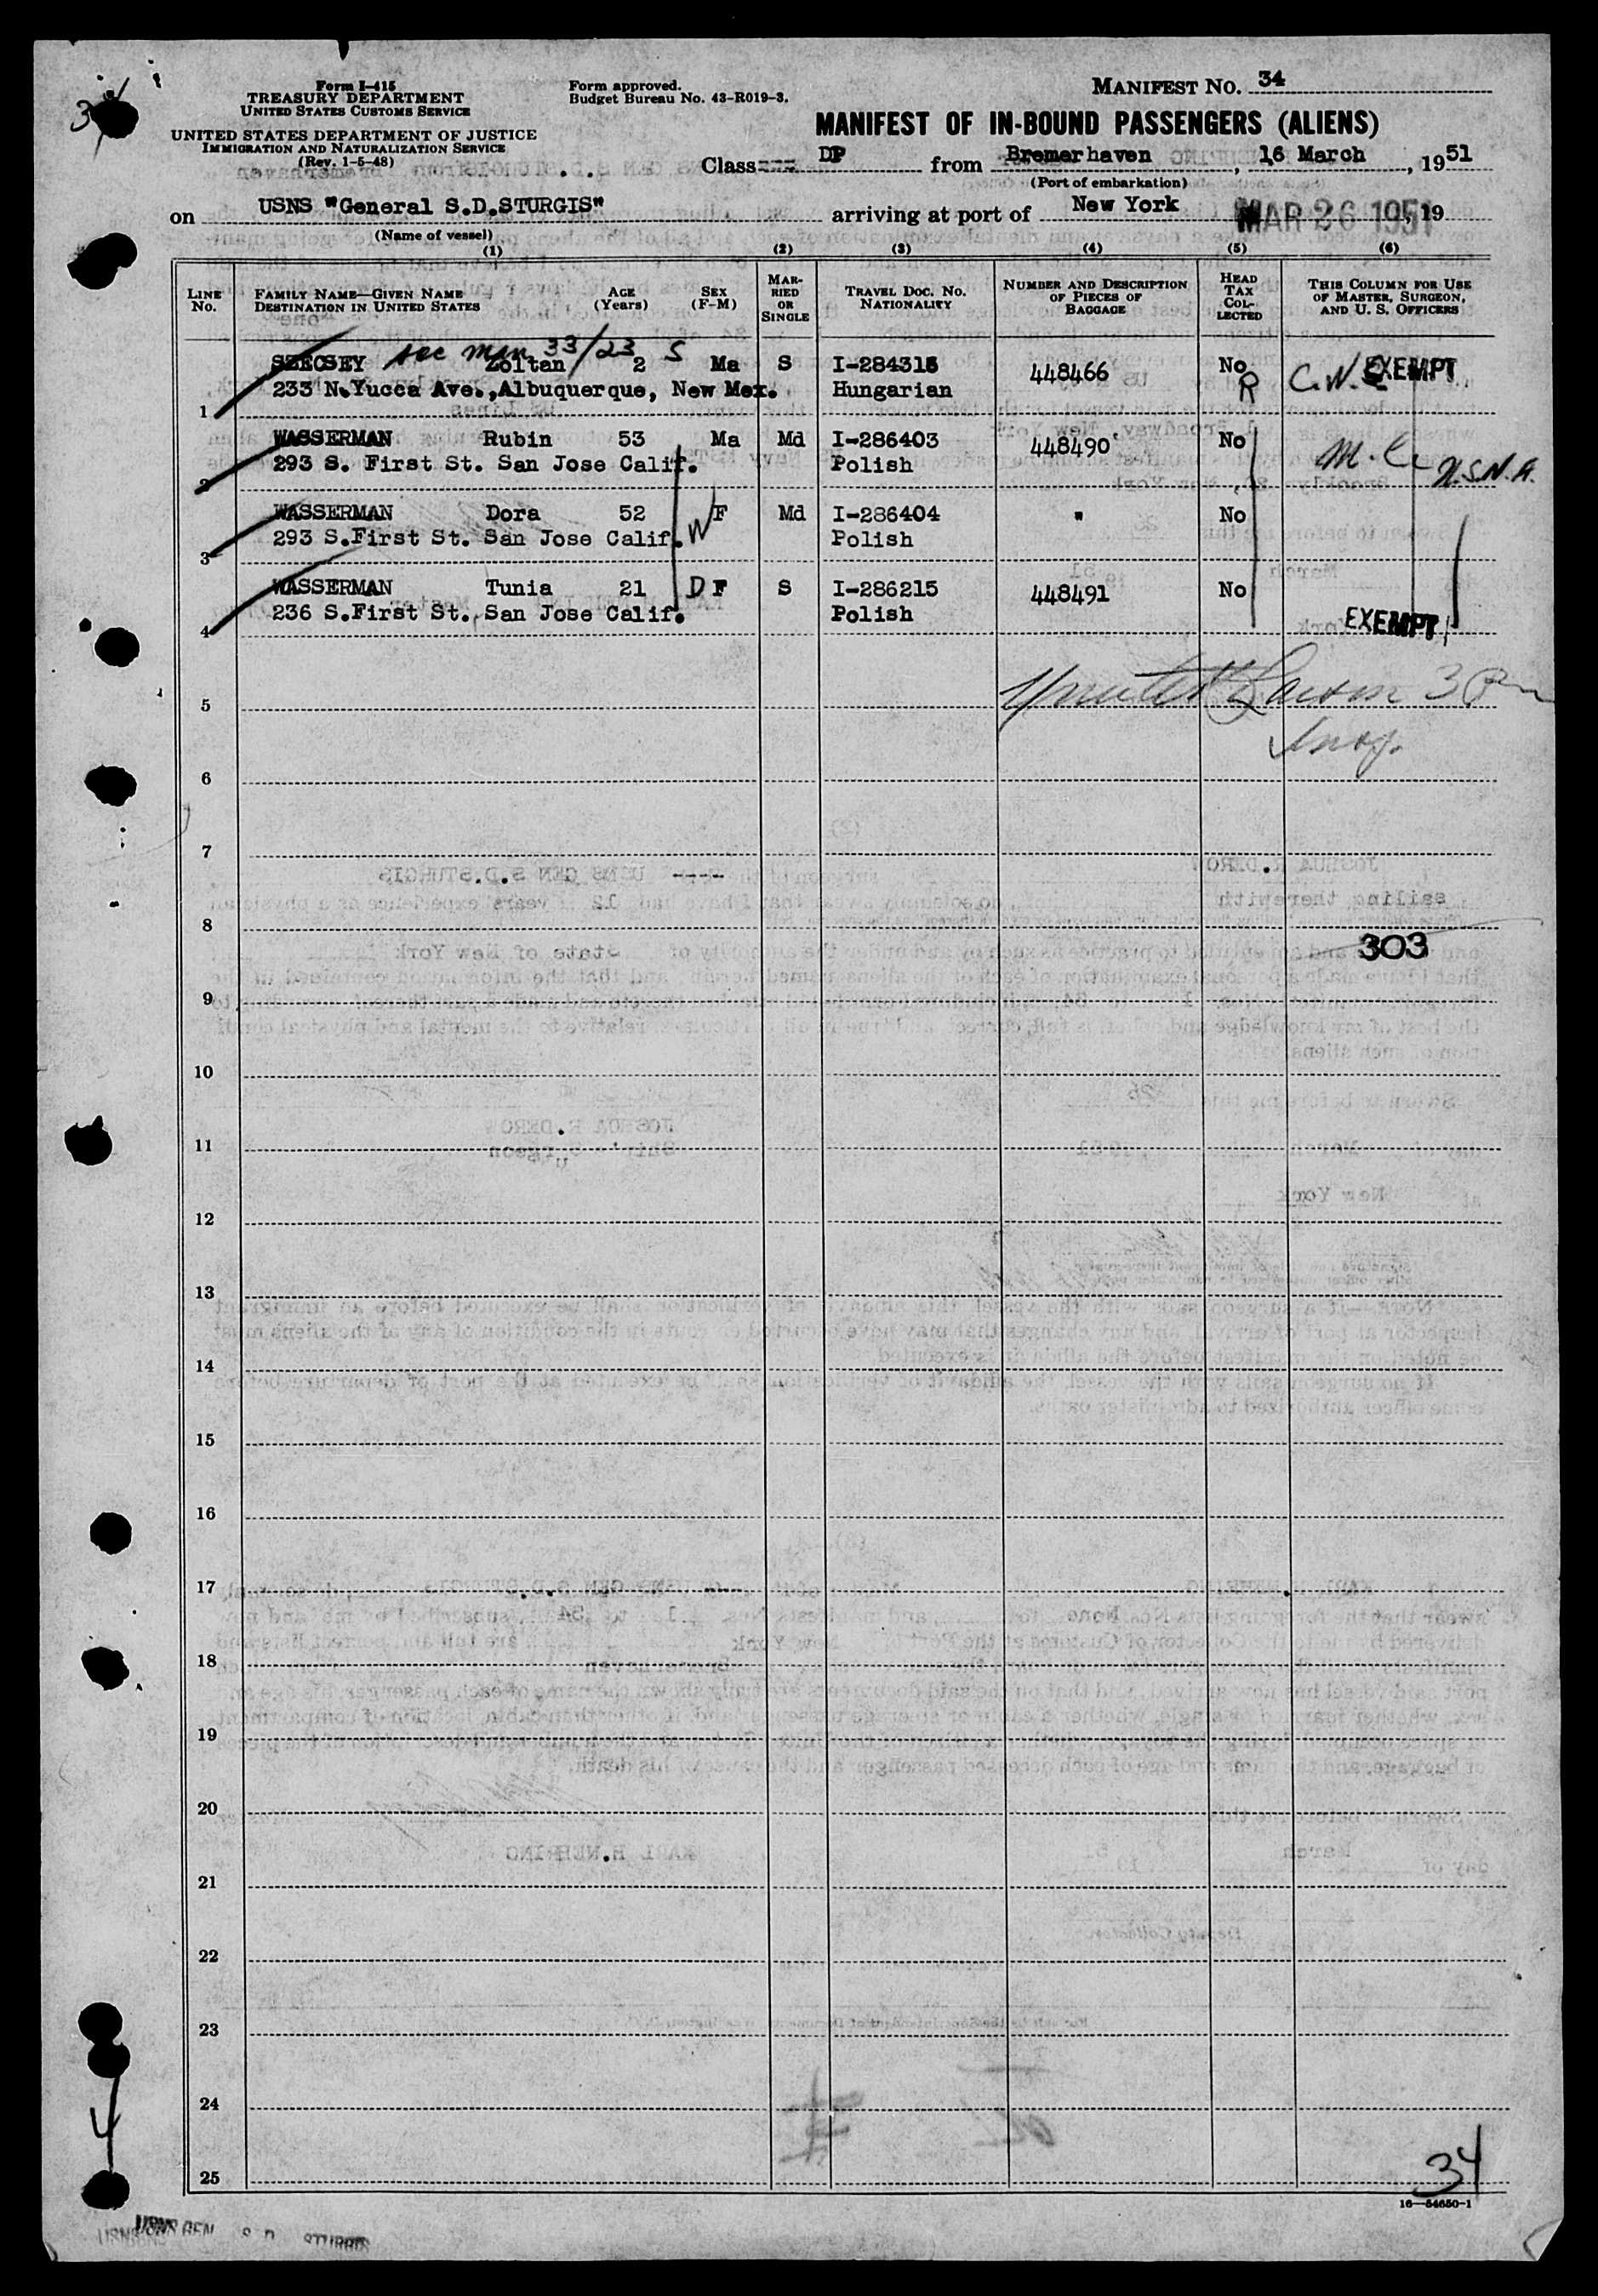 34
Form I-415
TREASURY DEPARTMENT
UNITED STATES CUSTOMS SERVICE
UNITED STATES DEPARTMENT OF JUSTICE
IMMIGRATION AND NATURALIZATION SERVICE
(Rev. 1-5-48)
Form approved.
Budget Bureau No. 43-R019-3.
MANIFEST NO. 34
MANIFEST OF IN-BOUND PASSENGERS (ALIENS)
Class DP from Bremerhaven, 16 March, 1951
(Port of embarkation)
on USNS "General S.D.STURGIS" arriving at port of New York MAR 26 1951, 19
(Name of vessel)
(1) (2) (3) (4) (5) (6)
LINE NO. FAMILY NAME—GIVEN NAME DESTINATION IN UNITED STATES AGE (Years) SEX (F-M) MARRIED OR SINGLE TRAVEL DOC. NO. NATIONALITY NUMBER AND DESCRIPTION OF PIECES OF BAGGAGE HEAD TAX COLLECTED THIS COLUMN FOR USE OF MASTER, SURGEON, AND U. S. OFFICERS
see man 33/23 S
SZECSEY Zoltan 2 Ma S I-284315 448466 No R C.W. EXEMPT
1 233 N.Yucca Ave.,Albuquerque, New Mex. Hungarian
WASSERMAN Rubin 53 Ma Md I-286403 448490 No
2 293 S. First St. San Jose Calif. Polish U.S.N.A.
WASSERMAN Dora 52 W F Md I-286404 " No
3 293 S.First St. San Jose Calif. Polish
WASSERMAN Tunia 21 D F S I-286215 448491 No
4 236 S.First St. San Jose Calif. Polish EXEMPT
5
6
7
8
303
9
10
11
12
13
14
15
16
17
18
19
20
21
22
23
24
25
4
34
16—54650-1
USNS GEN S D STURGIS